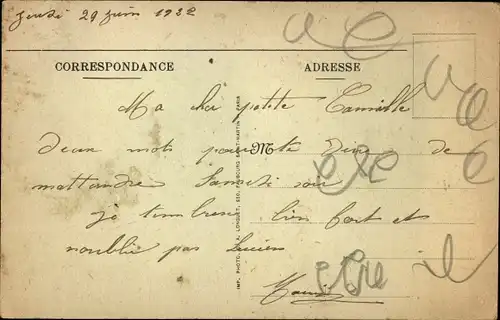 Jeudi 29 Juin 1922
CORRESPONDANCE
ADRESSE
Ma chei petite Camille
deux mots pour te dire de
M
mattendre Samedi soir
je tembresse bien fort et
noublie pas Lucien
IMP. PHOTO. A. LONGUET, 250, FAUBOURG SAINT-MARTIN, PARIS